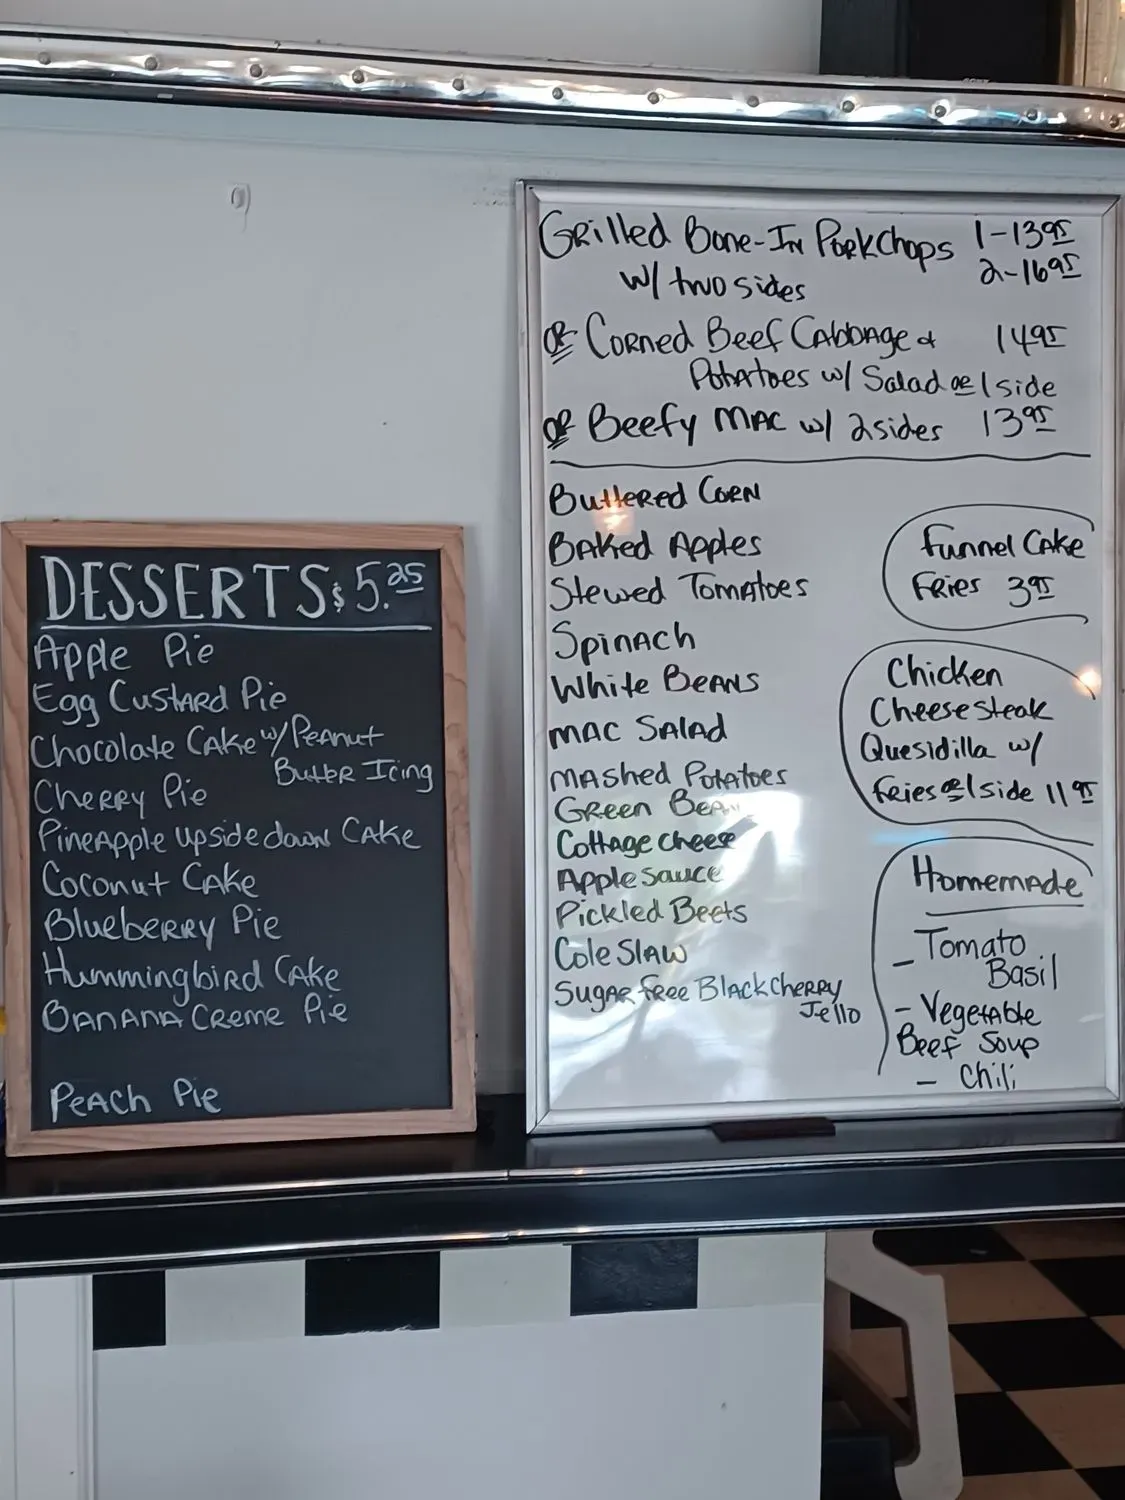 DESSERTS $5.25
Apple Pie
Egg Custard Pie
Chocolate Cake w/ Peanut
Butter Icing
Cherry Pie
Pineapple upside down Cake
Coconut Cake
Blueberry Pie
Hummingbird Cake
Banana Creme Pie
Peach Pie
Grilled Bone-In PorkChops 1-13.95
w/ two sides 2-16.95
or Corned Beef Cabbage & 14.95
Potatoes w/ Salad or 1 side
or Beefy Mac w/ 2 sides 13.95
Buttered Corn
Baked Apples
Stewed Tomatoes
Spinach
White Beans
Mac Salad
Mashed Potatoes
Green
Cottage cheese
Apple sauce
Pickled Beets
Cole Slaw
Sugar free Black Cherry
Jello
Funnel Cake
Fries 3.95
Chicken
Cheesesteak
Quesidilla w/
fries or 1 side 11.95
Homemade
- Tomato
Basil
- Vegetable
Beef Soup
- Chili